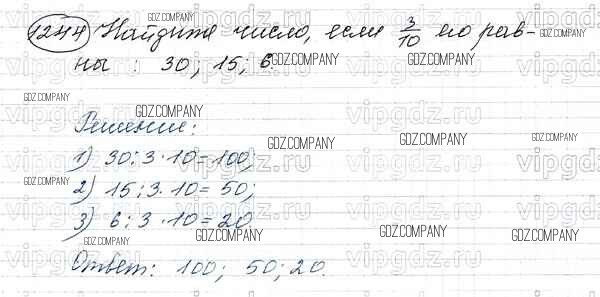 1244 Найдите число, если 3/10 его рав-
ны : 30; 15; 6.
Решение:
1) 30:3·10=100;
2) 15:3·10=50;
3) 6:3·10=20
Ответ: 100; 50; 20.
GDZ.COMPANY
vipgdz.ru